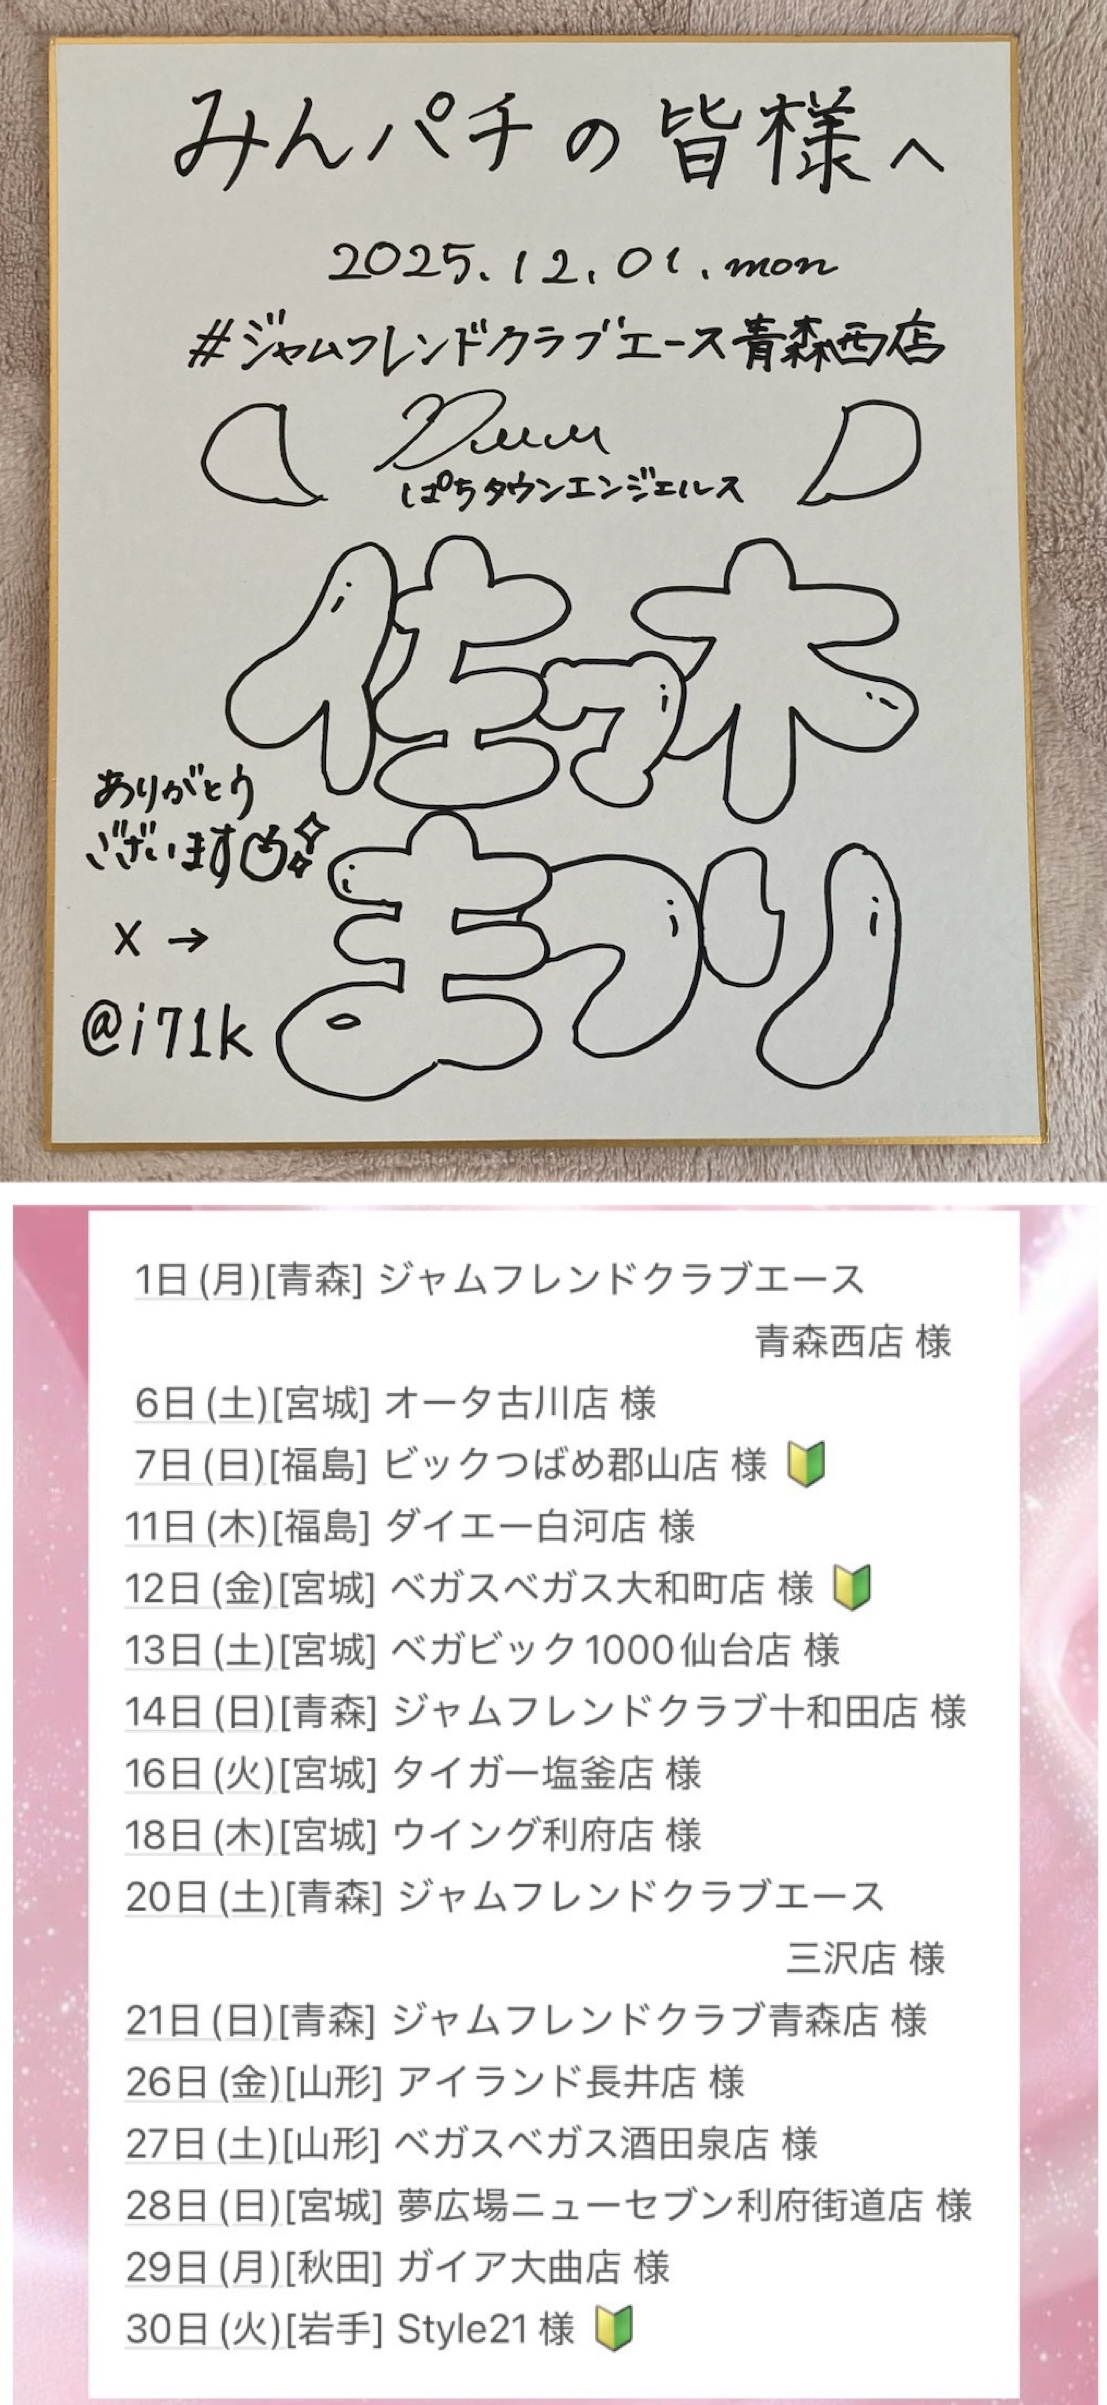 みんパチの皆様へ
2025.12.01.mon
#ジャムフレンドクラブエース青森西店
ぱちタウンエンジェルス
佐々木
まつり
ありがとう
ございます
X →
@i71k
1日(月)[青森] ジャムフレンドクラブエース
青森西店 様
6日(土)[宮城] オータ古川店 様
7日(日)[福島] ビックつばめ郡山店 様 🔰
11日(木)[福島] ダイエー白河店 様
12日(金)[宮城] ベガスベガス大和町店 様 🔰
13日(土)[宮城] ベガビック1000仙台店 様
14日(日)[青森] ジャムフレンドクラブ十和田店 様
16日(火)[宮城] タイガー塩釜店 様
18日(木)[宮城] ウイング利府店 様
20日(土)[青森] ジャムフレンドクラブエース
三沢店 様
21日(日)[青森] ジャムフレンドクラブ青森店 様
26日(金)[山形] アイランド長井店 様
27日(土)[山形] ベガスベガス酒田泉店 様
28日(日)[宮城] 夢広場ニューセブン利府街道店 様
29日(月)[秋田] ガイア大曲店 様
30日(火)[岩手] Style21 様 🔰